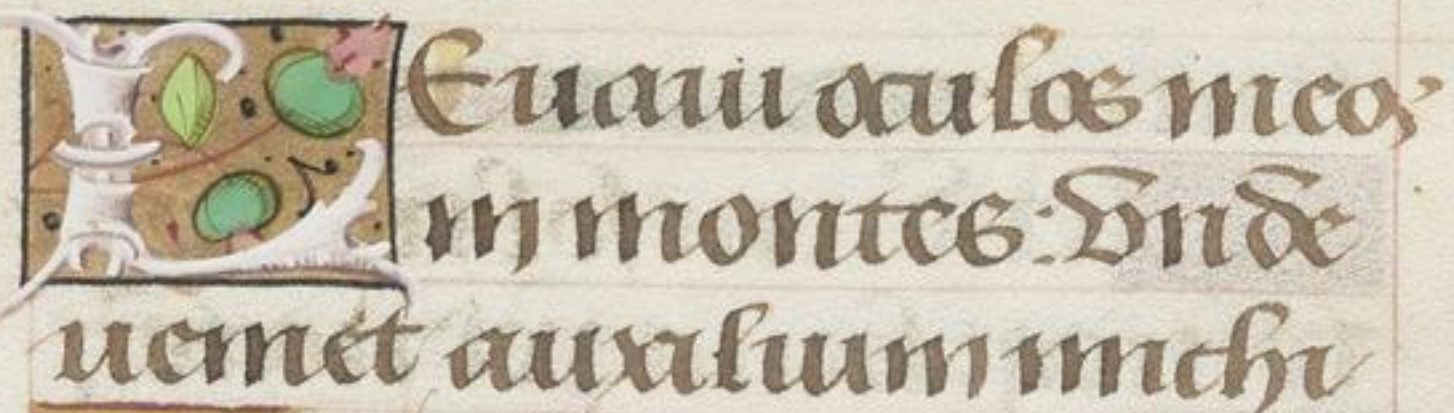 LEuaui oculos meos
in montes: Vnde
ueniet auxilium michi